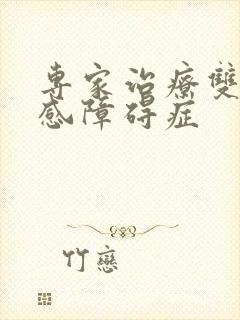 專家治療雙
感障碍症
竹戀